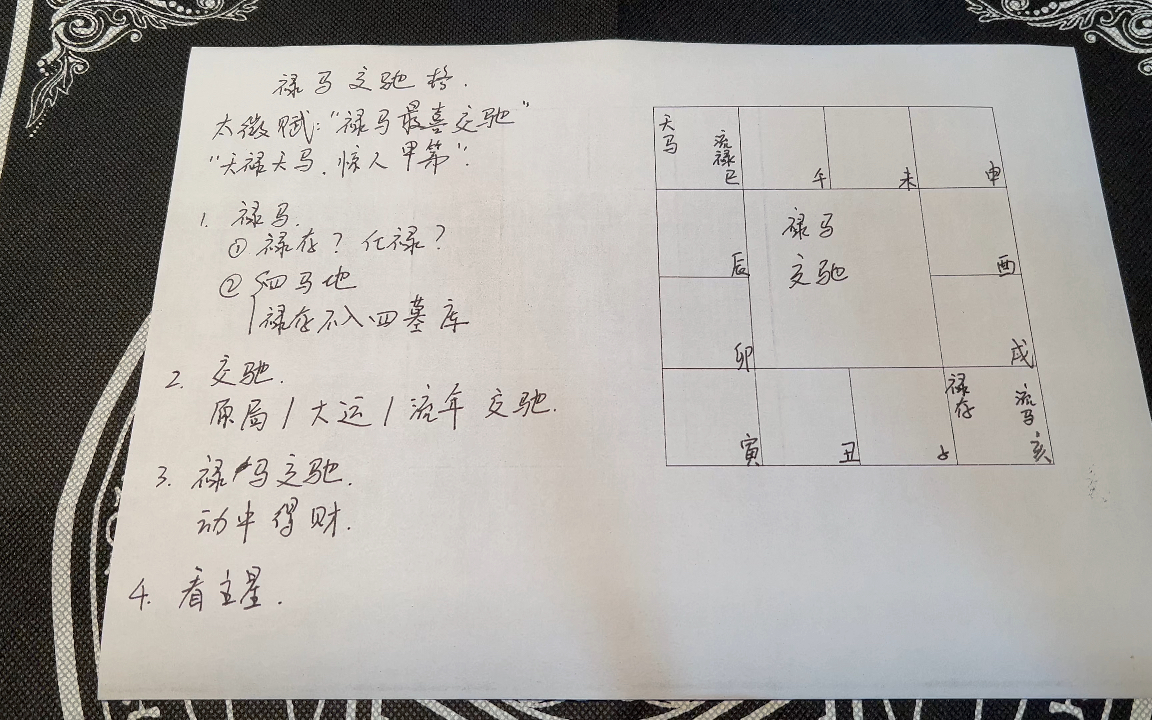 禄马交驰格.
太微赋:"禄马最喜交驰"
"天禄天马.惊人甲第".
1. 禄马.
① 禄存? 化禄?
② 四马地
禄存不入四墓库
2. 交驰.
原局/大运/流年 交驰.
3. 禄马交驰.
动中得财.
4. 看主星.
天马 流禄 巳
午
未
申
辰
禄马
交驰
酉
卯
戌
寅
丑
子
禄存 流马 亥